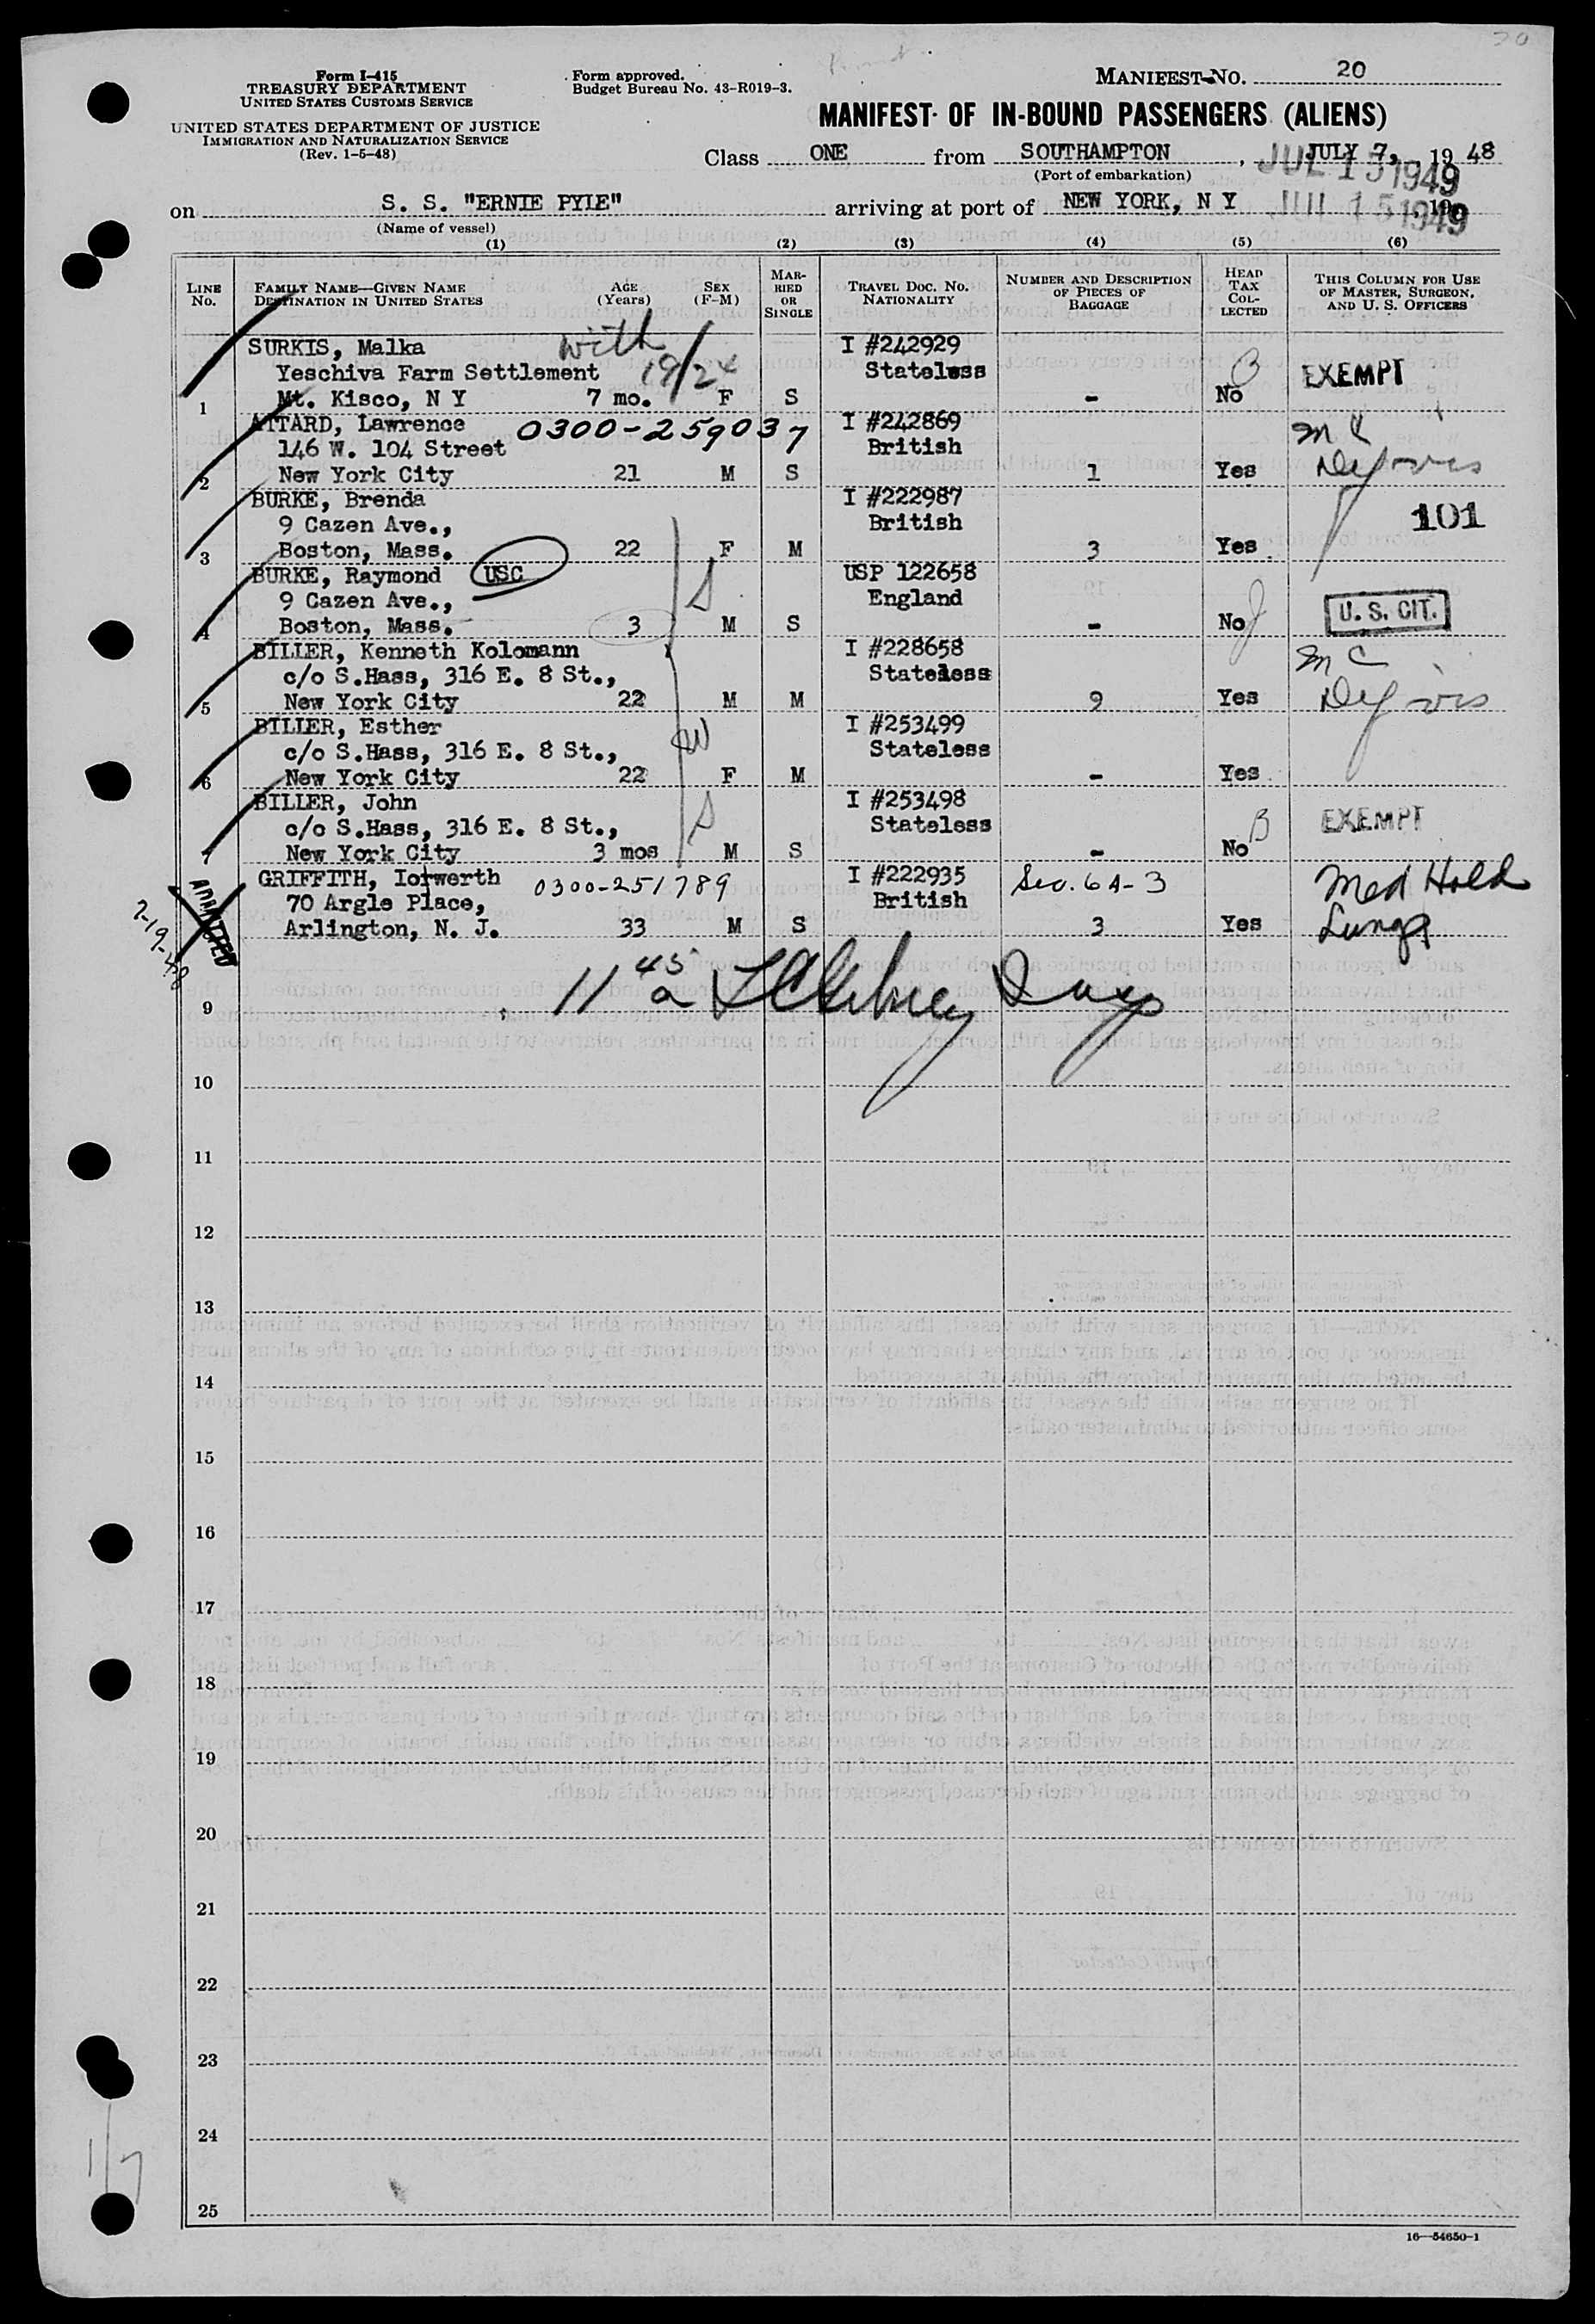 20
Form I-415
TREASURY DEPARTMENT
UNITED STATES CUSTOMS SERVICE
UNITED STATES DEPARTMENT OF JUSTICE
IMMIGRATION AND NATURALIZATION SERVICE
(Rev. 1-5-48)
Form approved.
Budget Bureau No. 43-R019-3.
MANIFEST NO. 20
MANIFEST OF IN-BOUND PASSENGERS (ALIENS)
Class ONE from SOUTHAMPTON, JULY 7, 19 48
(Port of embarkation)
JUL 15 1949
on S. S. "ERNIE PYLE" arriving at port of NEW YORK, N Y JUL 15 1949, 19
(Name of vessel)
(1) (2) (3) (4) (5) (6)
LINE No. FAMILY NAME—GIVEN NAME DESTINATION IN UNITED STATES AGE (Years) SEX (F-M) MARRIED OR SINGLE TRAVEL DOC. NO. NATIONALITY NUMBER AND DESCRIPTION OF PIECES OF BAGGAGE HEAD TAX COLLECTED THIS COLUMN FOR USE OF MASTER, SURGEON, AND U. S. OFFICERS
SURKIS, Malka with I #242929
Yeschiva Farm Settlement 19/24 Stateless EXEMPT
1 Mt. Kisco, N Y 7 mo. F S - No
ATTARD, Lawrence 0300-259037 I #242869
146 W. 104 Street British
2 New York City 21 M S 1 Yes
BURKE, Brenda I #222987
9 Cazen Ave., British 101
3 Boston, Mass. 22 F M 3 Yes
BURKE, Raymond USC USP 122658
9 Cazen Ave., England U. S. CIT.
4 Boston, Mass. 3 M S - No
BILLER, Kenneth Kolomann I #228658
c/o S.Hass, 316 E. 8 St., Stateless
5 New York City 22 M M 9 Yes
BILLER, Esther W I #253499
c/o S.Hass, 316 E. 8 St., Stateless
6 New York City 22 F M - Yes
BILLER, John S I #253498
c/o S.Hass, 316 E. 8 St., Stateless EXEMPT
7 New York City 3 mos M S - No
GRIFFITH, Iorwerth 0300-251789 I #222935 Sec. 6A-3 Med Hold
70 Argle Place, British
Arlington, N. J. 33 M S 3 Yes Lungs
ADMITTED
7-19-48
11 45 a
9
10
11
12
13
14
15
16
17
18
19
20
21
22
23
24
25
1/7
16—54650-1